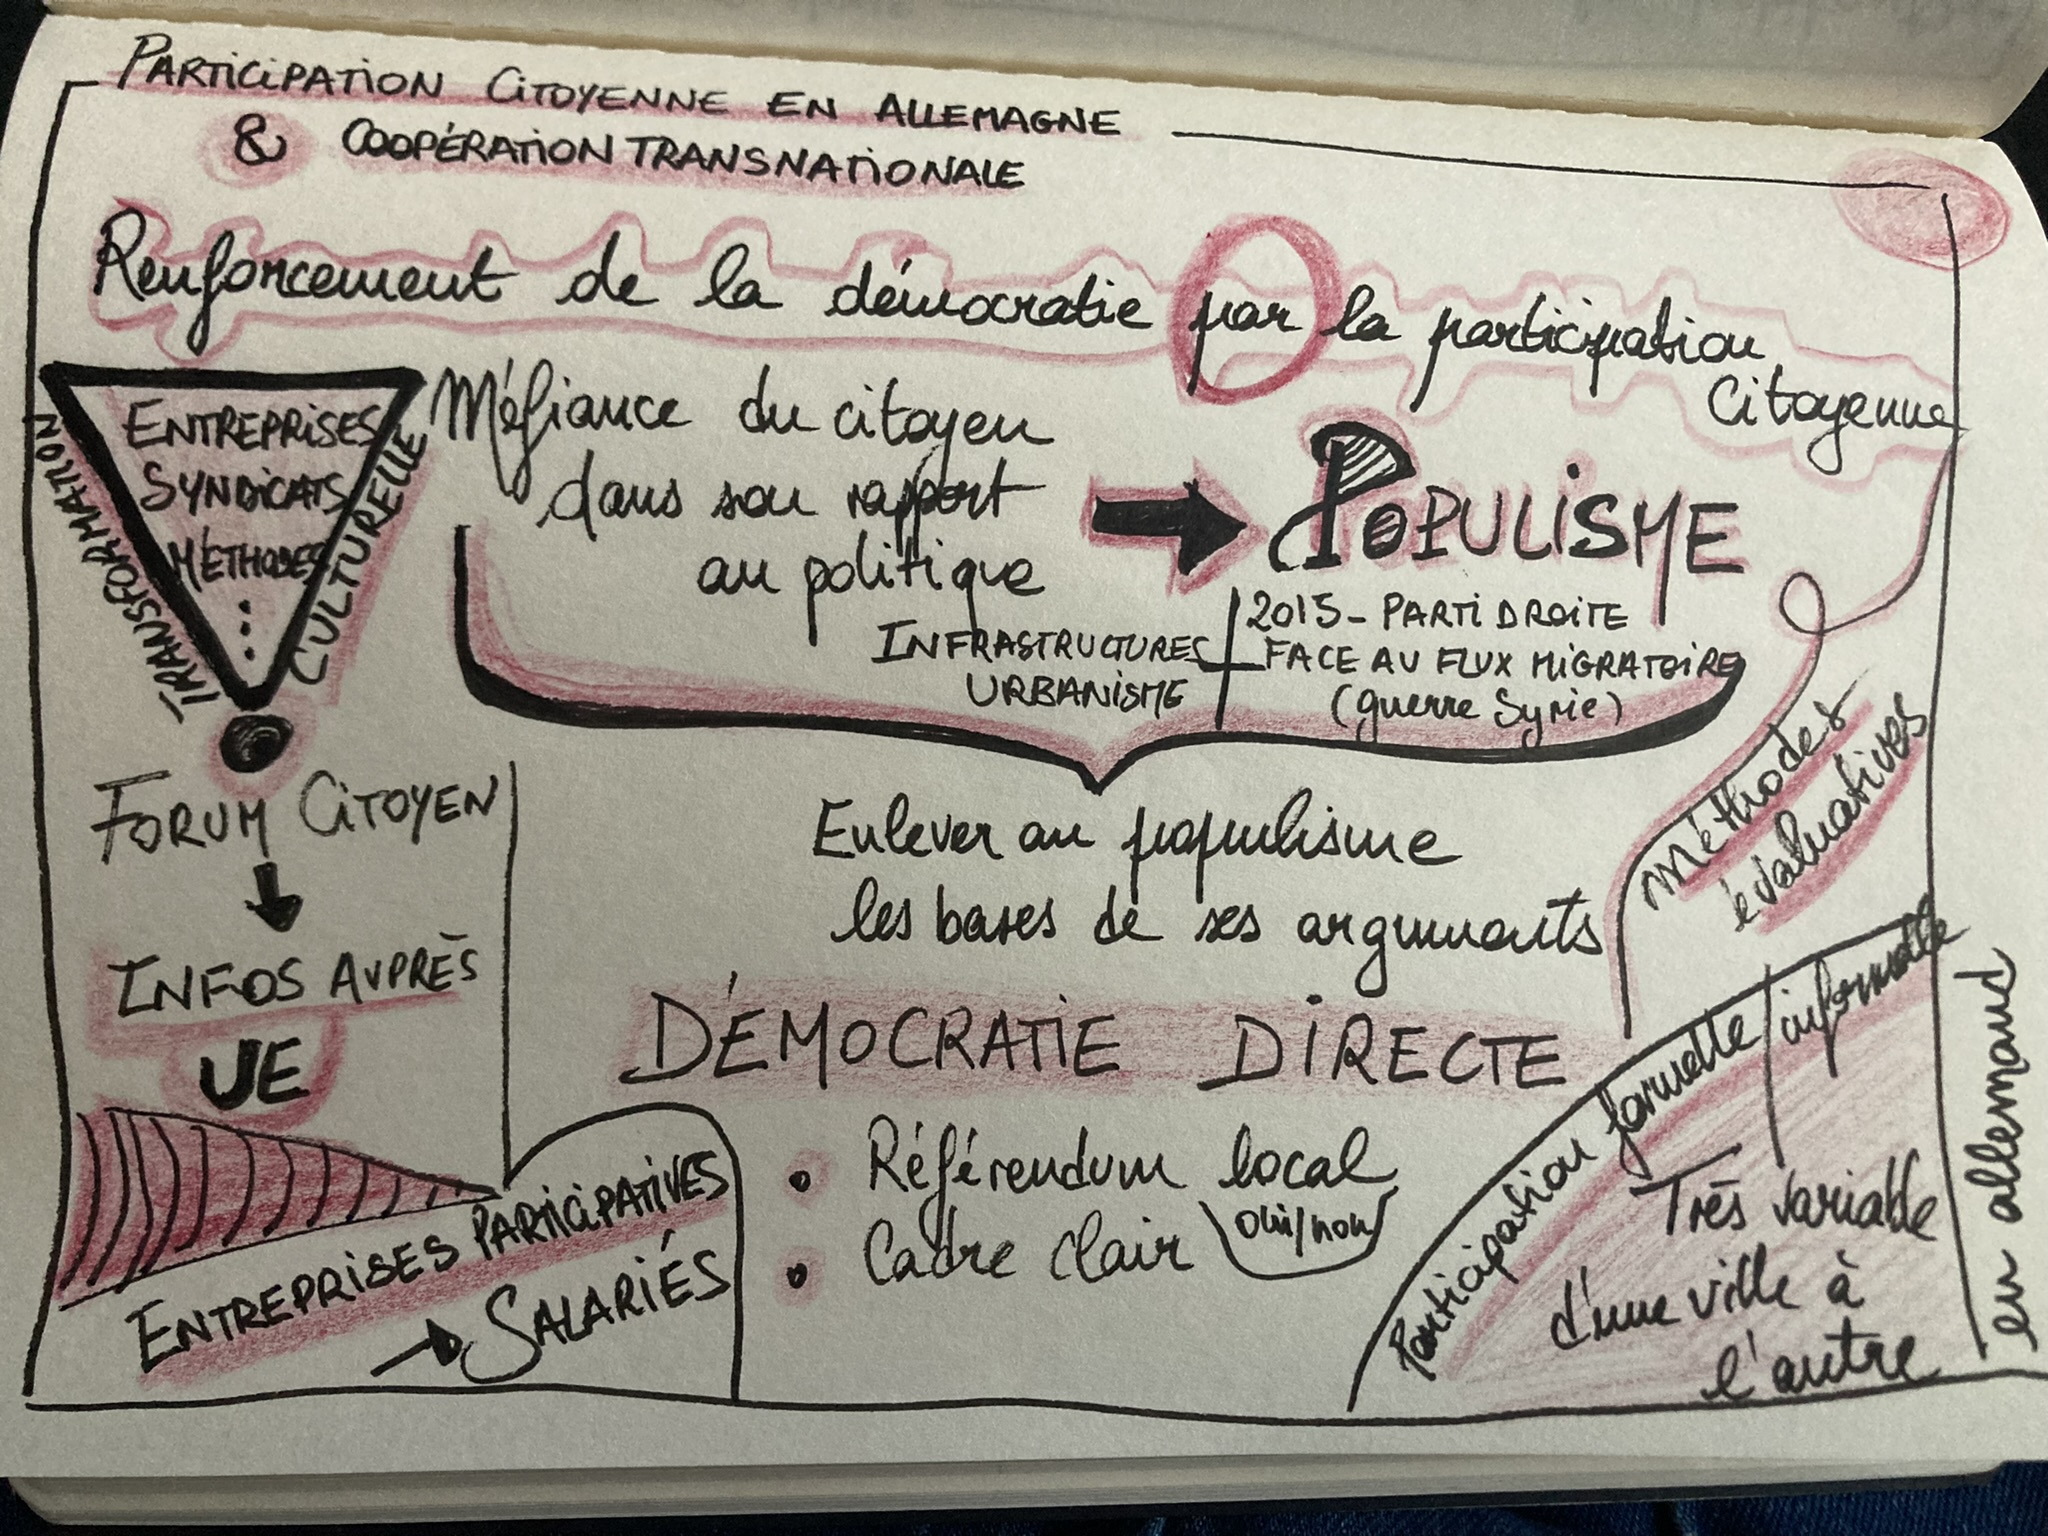 PARTICIPATION CITOYENNE EN ALLEMAGNE
& COOPÉRATION TRANSNATIONALE
Renforcement de la démocratie par la participation
Citoyenne
ENTREPRISES
SYNDICATS
MÉTHODES
...
TRANSFORMATION
CULTURELLE
Méfiance du citoyen
dans son rapport
au politique
POPULISME
INFRASTRUCTURES
URBANISME
2015 - PARTI DROITE
FACE AU FLUX MIGRATOIRE
(guerre Syrie)
FORUM CITOYEN
INFOS AUPRÈS
UE
ENTREPRISES PARTICIPATIVES
→ SALARIÉS
Enlever au populisme
les bases de ses arguments
DÉMOCRATIE DIRECTE
• Référendum local
oui/non
• Cadre clair
Méthodes
évaluatives
Participation formelle / informelle
Très variable
d'une ville à
l'autre
en allemand